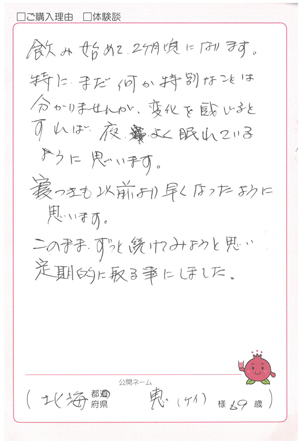 □ご購入理由 □体験談
飲み始めて2ヶ月頃になります。
特に、まだ何か特別なことは
分かりませんが、変化を感じると
すれば、夜、よく眠れている
ように思います。
寝つきも以前より早くなったように
思います。
このまま、ずっと続けてみようと思い
定期的に取る事にしました。
公開ネーム
(北海 都道府県 恵(ケイ) 様 69歳)